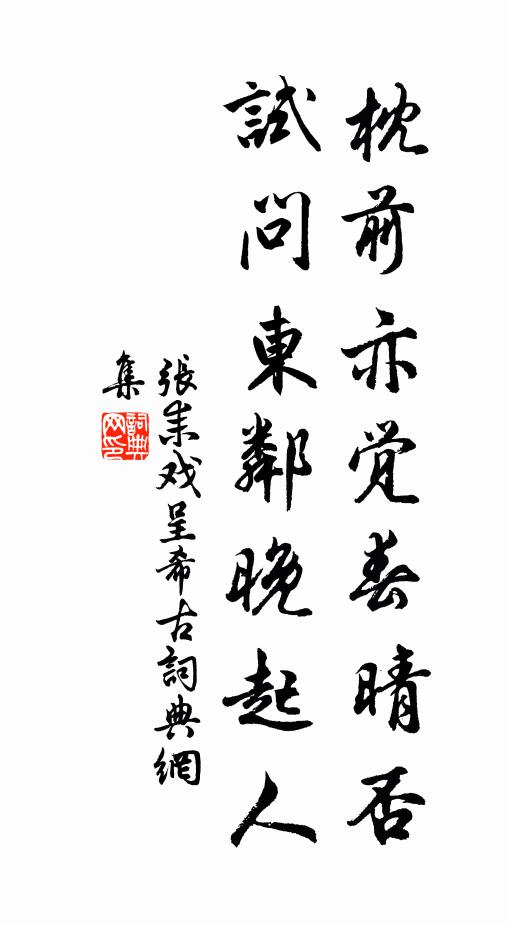 枕前亦覚春晴否
試問東鄰晚起人
張耒戏呈希古詞典網
集
詞典
网印